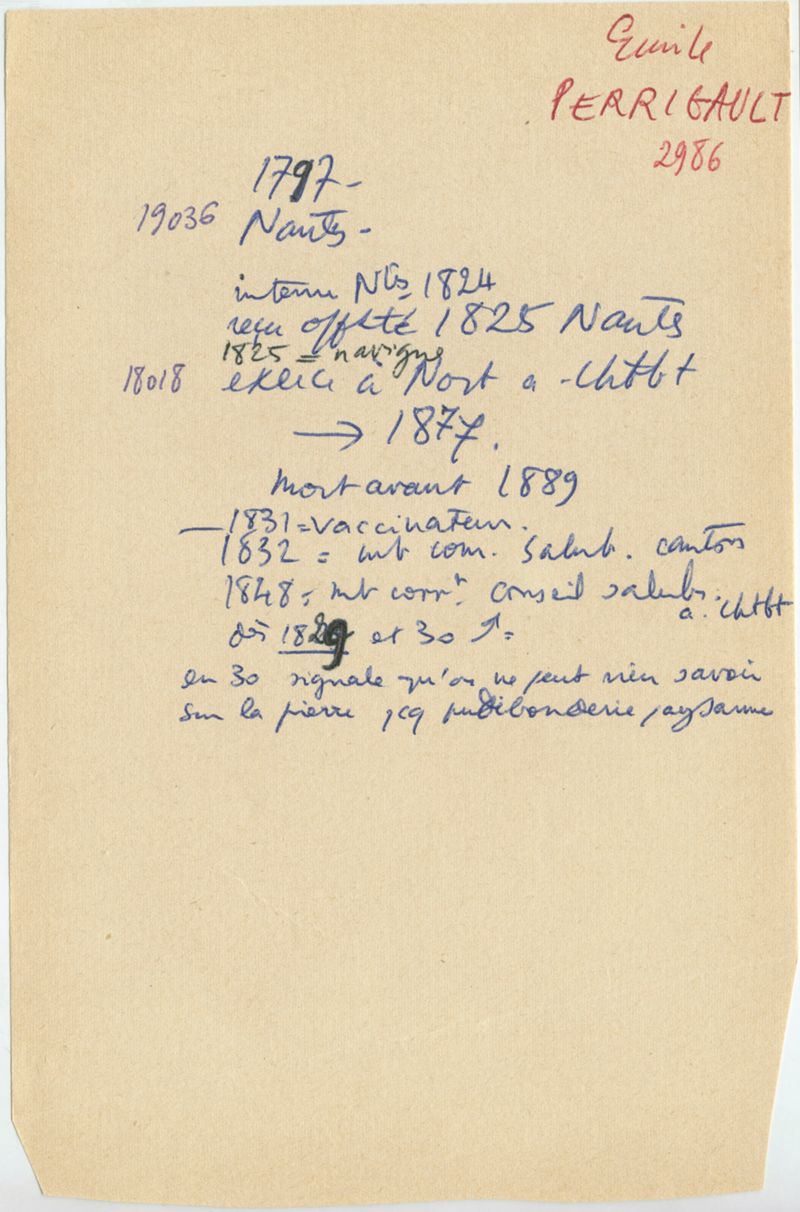 Emile
PERRIGAULT
2986
1797 -
19036 Nantes -
interne Ntes 1824
reçu offsté 1825 Nantes
1825 = navigue
18018 exerce à Nort a Chtbt
→ 1877.
mort avant 1889
— 1831 = vaccinateur.
1832 = mb com. salub. cantons
1848 = mb corrt. conseil salub.
a. Chtbt
dès 1829 et 30 =
en 30 signale qu'on ne peut rien savoir
sur la pierre pcq pudibonderie paysanne